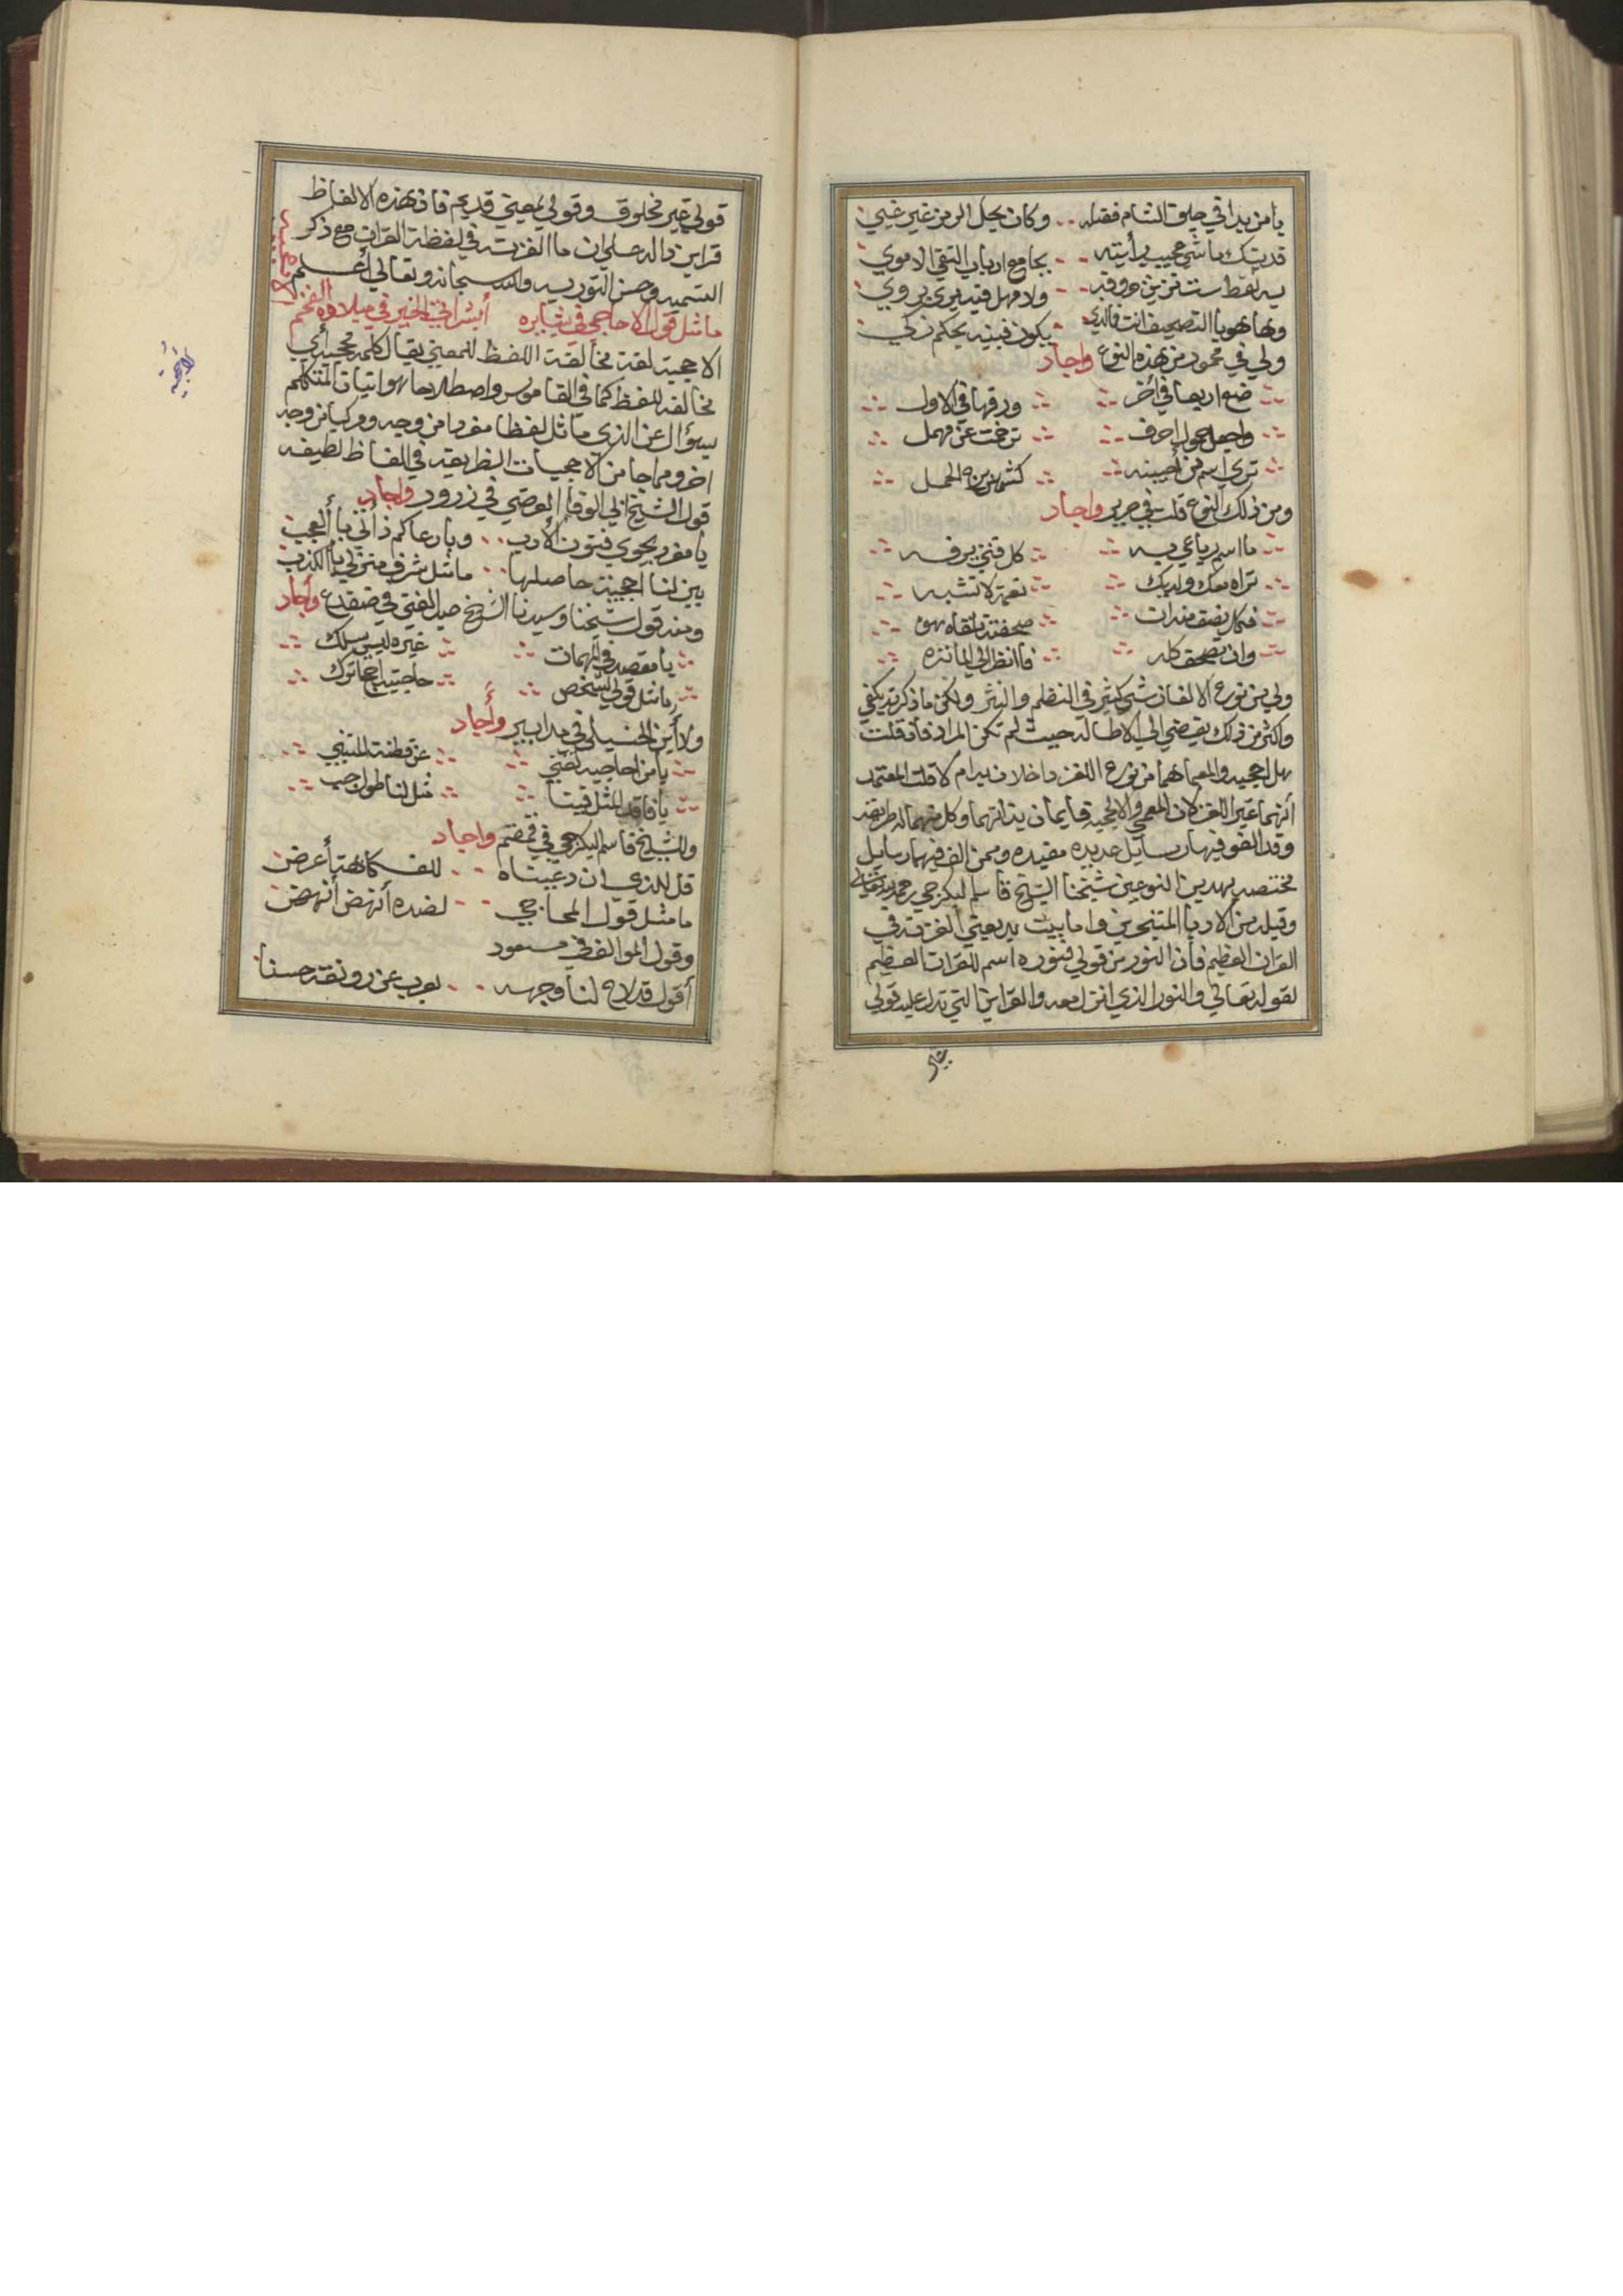 يامن بدا في جلق الشام فضله وكان بحل الرمز غير غبي
فديتك ما شي عجيب رأيته بجامع ارباب التقي الاموي
به نقط ست تزين حروفه ولا مهل فيه يري يروي
وها هو يا التصحيف انت فالذي يكون نبيه يحكم ذكي
ولي في محمود من هذه النوع واجاد
ضع اربعا في أخر ورقها في الاول
واجعل حول احرف ترخت عن مهمل
تري اسم من أحببته كشمس برج الحمل
ومن ذلك النوع قلت في حرير واجاد
ما اسم رباعي به كل فتي يرفه
تراه معك ولديك نعمة لا تشبه
فكل نصف منه ان صحفته تلقاه هو
وان تصحف كله فاانظر الي المانزه
ولي من نوع الالغاز شي كثير في النظم والنثر ولكن ما ذكرته يكفي
واكثر من ذلك يفضي الي الاطالة حيث لم تكن المراد فان قلت
هل احجيه والمعما هما من نوع اللغز داخلان به ام لا قلت المعتمد
أنهما غير اللغز لان المعمي والاحجيه قايمان بذاتهما وكل منهما له طريقه
وقد الفو فيها رسائل عديده مفيده وممن الف فيهما رسايل
مختصره بهدين النوعين شيخنا الشيخ قاسم البكرجي رحمه الله تعالي
وقيله من الادبا المتبحرين واما بيت بديعتي ألغزته في
القران العظيم فأن النور من قولي فنوره اسم للقران العظيم
لقوله تعالي والنور الذي انزل معه والقراين التي تدل عليه قولي
قولي غير مخلوق وقولي لمعني قديم فان هذه الالفاظ
قراين دالة علي ان ما الغزته في لفظة القران مع ذكر
التسميه وحسن التوريه والله سبحانه وتعالي أعلم
الاحجيه
ما مثل قول الاحاجي في بشايره أبشر اتي الخير في ميلاده الفخم
الاحجية لغة مخالفة اللفظ للمعني يقال كلمة محجية أي
مخالفة للفظ كما في القاموس واصطلاحا هو اتيان المتكلم
بسؤال عن الذي ماثل لفظا مفردا من وجه ومركبا من وجه
اخر ومما جا من الاحجيات الظريفه في الفاظ لطيفه
قول الشيخ ابي الوفا العرضي في زرور واجاد
يا مفرد يحوي فنون الأدب ويارعاكم ذا أتي بأ العجب
بين لنا احجية حاصلها ما مثل شرف منزلي بأ الكذب
ومنه قول شيخنا وسيدنا الشيخ صالفتي في ضفدع وأجاد
يا مقصد في المهمات غيره ليس يسلك
ما مثل قولي لشخص حاجتيبا جماترك
ولأبن الحنبلي في مدابير واجاد
يأ من احاجيه تغني عن فطنة المتنبي
يأ فاقد المثل فينا مثل لنا طول جب
وللشيخ قاسم البكرجي في قمقم واجاد
قل للذي ان دعيناه للفكاهة بأعرض
ما مثل قول المحاجي لضده أنهض أنهض
وقول الموالف في مسعود
أقول قد لاح لنا وجهه يعرب عن رونقة حسنا
غير
لأحجيه